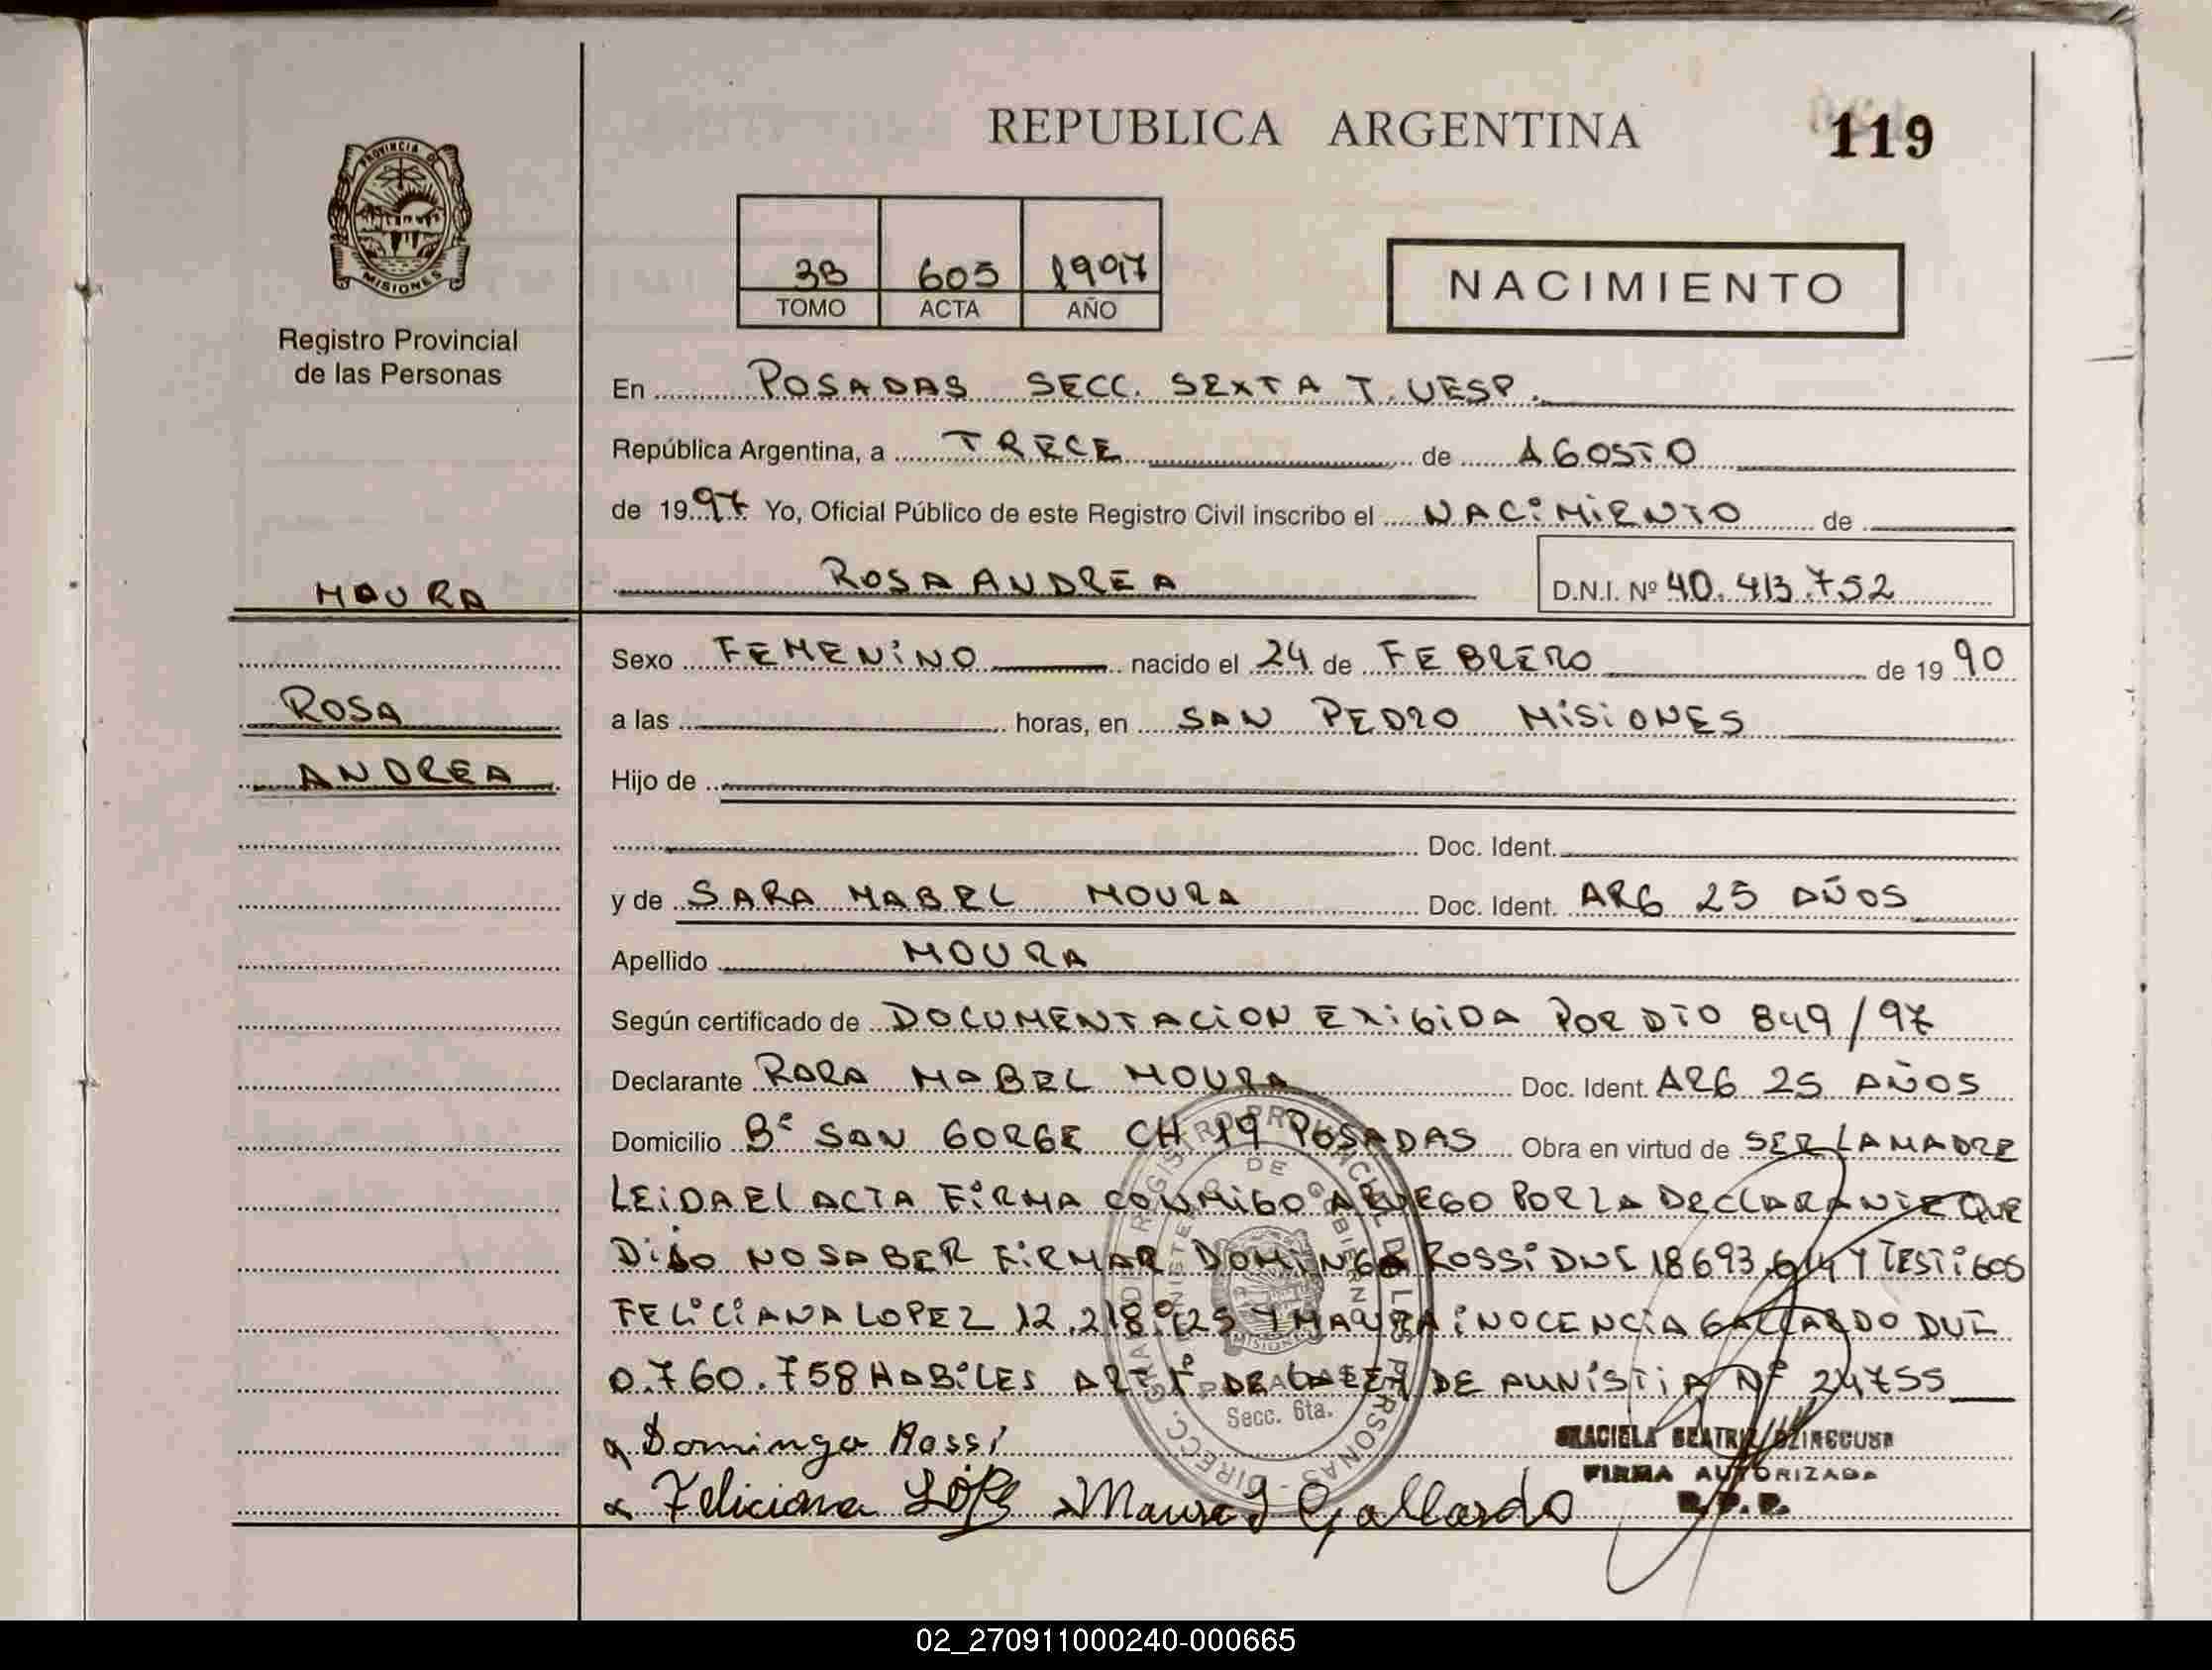 REPUBLICA ARGENTINA
119
PROVINCIA D
MISIONES
Registro Provincial
de las Personas
3B 605 1997
TOMO ACTA AÑO
NACIMIENTO
En POSADAS SECC. SEXTA T. VESP.
República Argentina, a TRECE de AGOSTO
de 1997 Yo, Oficial Público de este Registro Civil inscribo el NACIMIENTO de
ROSA ANDREA D.N.I. Nº 40.413.752
MOURA
ROSA
ANDREA
Sexo FEMENINO nacido el 24 de FEBRERO de 1990
a las horas, en SAN PEDRO MISIONES
Hijo de
Doc. Ident.
y de SARA MABEL MOURA Doc. Ident. ARG 25 AÑOS
Apellido MOURA
Según certificado de DOCUMENTACION EXIGIDA POR DTO 849/97
Declarante RARA MABEL MOURA Doc. Ident. ARG 25 AÑOS
Domicilio Bº SAN GORGE CH 19 POSADAS Obra en virtud de SER LA MADRE
LEIDA EL ACTA FIRMA CONMIGO A RUEGO POR LA DECLARANTE QUE
DIJO NO SABER FIRMAR DOMINGA ROSSI DNI 18693.614 Y TESTIGOS
FELICIANA LOPEZ 12.218. Y MAURA INOCENCIA GALLARDO DNI
0.760.758 HABILES ART 1º DE LA LEY DE AUNISTIA Nº 24755
Secc. 6ta.
Dominga Rossi
GRACIELA BEATRIZ
FIRMA AUTORIZADA
R.P.P.
Feliciana López Maura I Gallardo
02_270911000240-000665